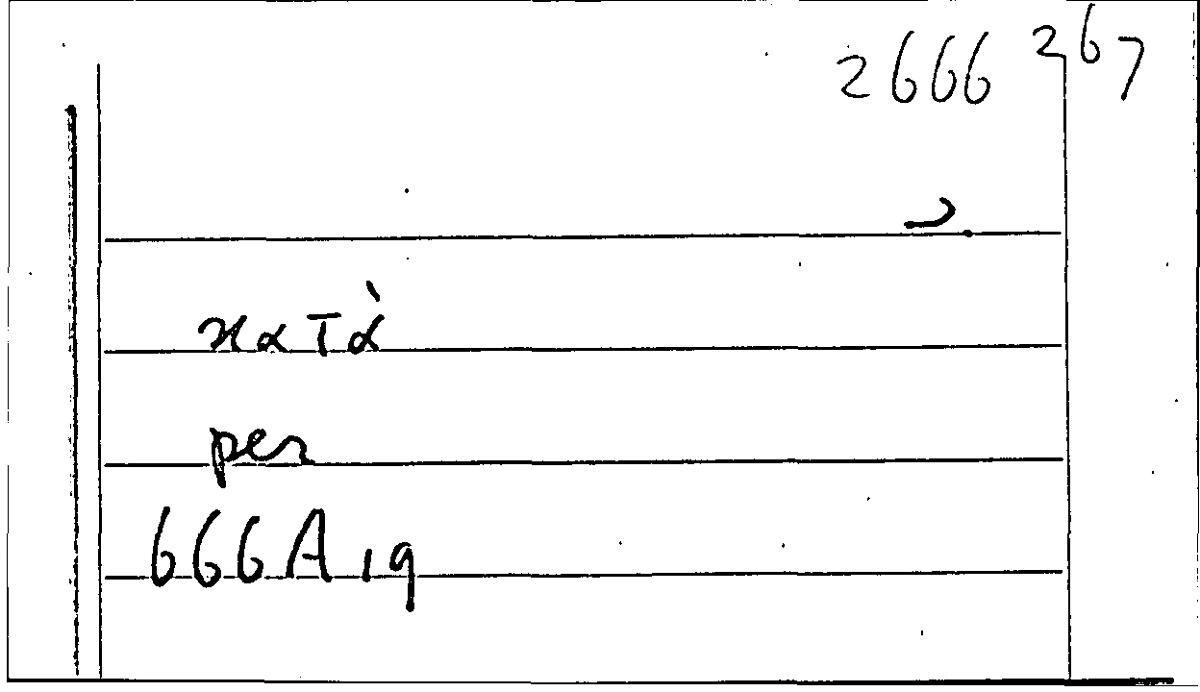 2666 267
κατὰ
per
666A19